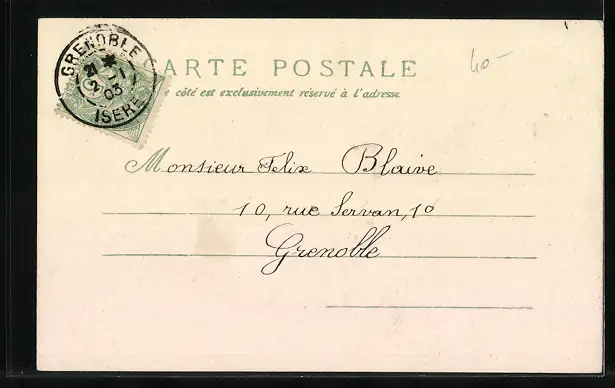 GRENOBLE
21 * 1
2
03
ISERE
CARTE POSTALE
40-
côté est exclusivement réservé à l'adresse
Monsieur Felix Blaive
10, rue Servan, 10
Grenoble